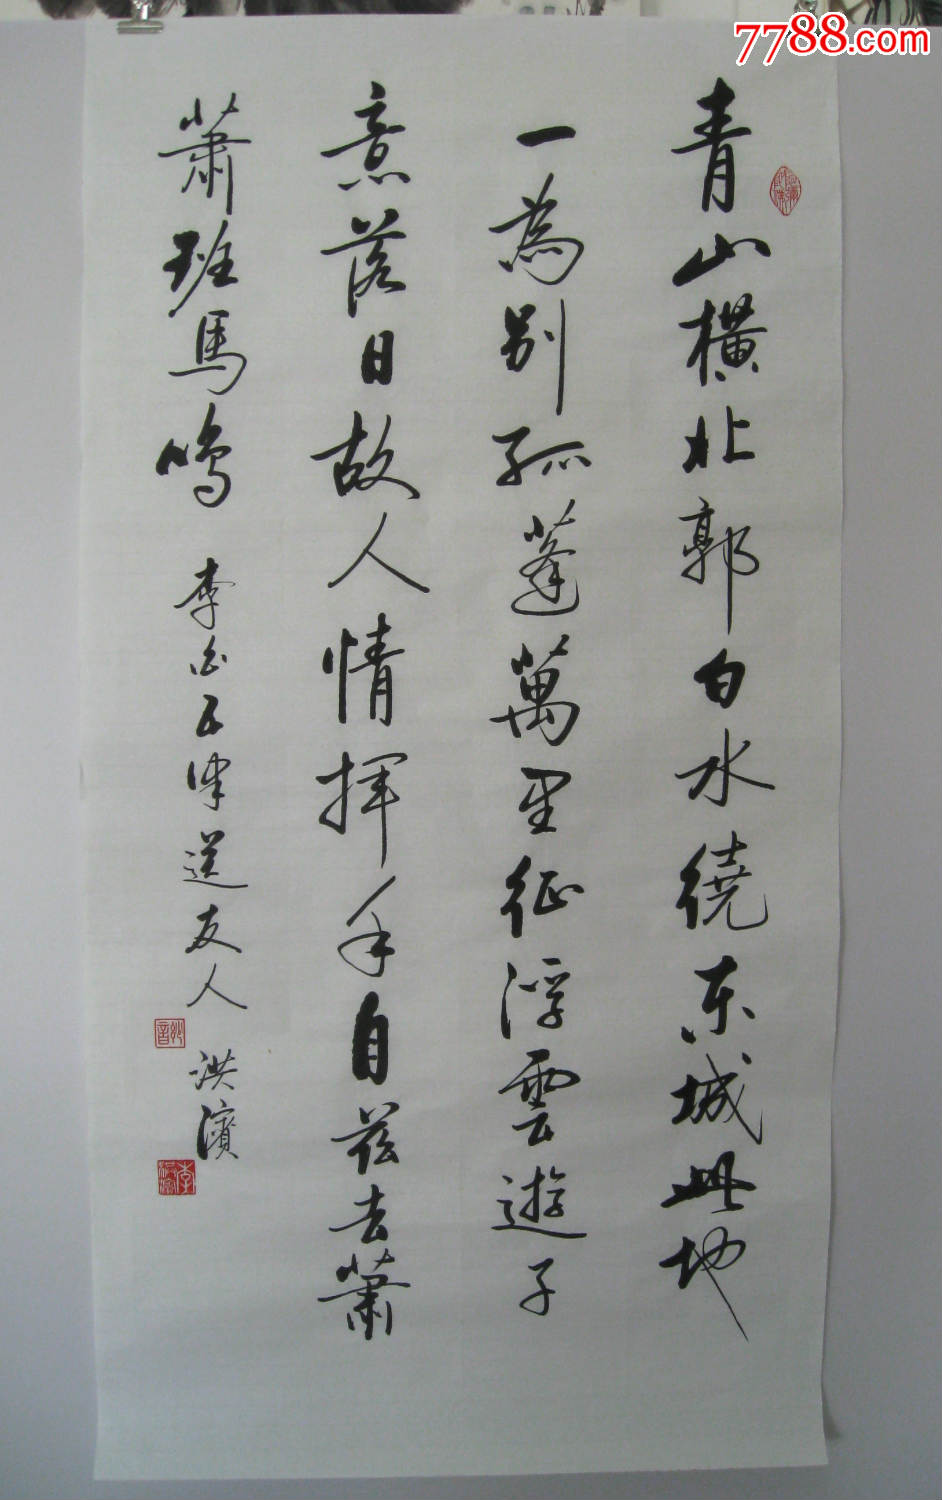 7788.com
青山橫北郭白水繞东城此地
一為别孤蓬萬里征浮雲遊子
意落日故人情揮手自茲去蕭
蕭班馬鳴 李白五律送友人 洪濱